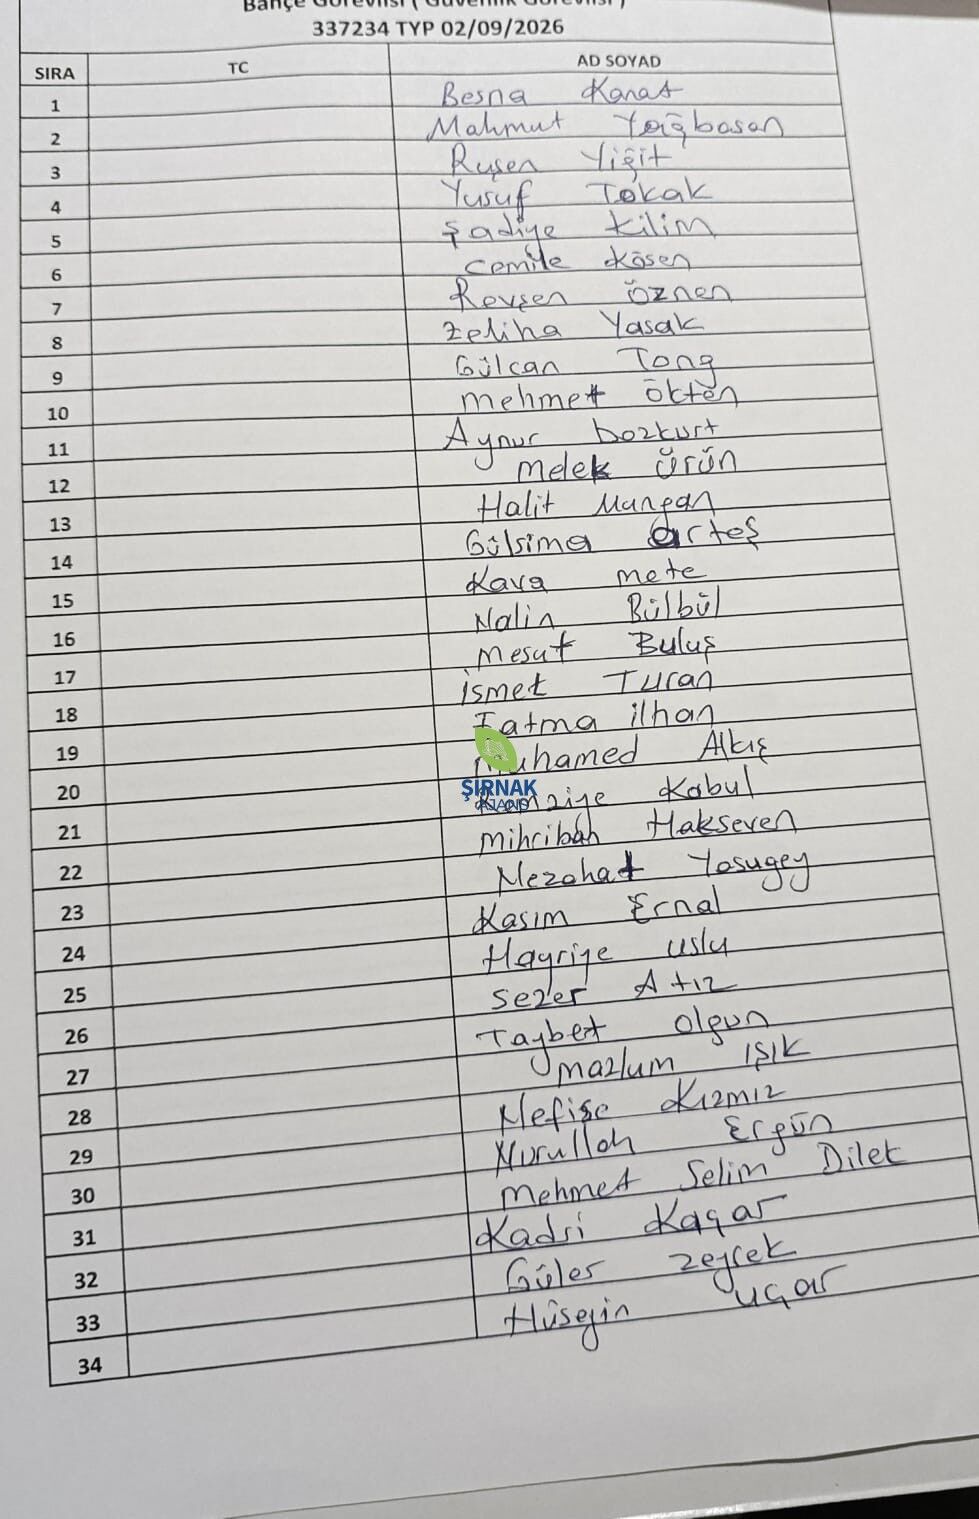 337234 TYP 02/09/2026
SIRA TC AD SOYAD
1 Besna Kanat
2 Mahmut
3 Ruşen Yiğit
4 Yusuf Tokak
5 Şadiye Kilim
6 Cemile Kösen
7 Revşen Öznen
8 Zeliha Yasak
9 Gülcan Tong
10 Mehmet Ökten
11 Aynur bozkurt
12 Melek Ürün
13 Halit Mungan
14 Gülsima erteş
15 Kava mete
16 Nalin Bülbül
17 Mesut Buluş
18 İsmet Turan
19 Fatma ilhan
20 Muhamed Alkış
ŞIRNAK
AJANS
21 Ramziye Kabul
22 Mihriban Hakseven
23 Nezahat Yasugey
24 Kasım Ernal
25 Hayriye uslu
26 Sezer Atız
27 Taybet Olgun
28 mazlum IŞIK
29 Nefise Kızmız
30 Nurullah Ergün
31 Mehmet Selim Dilek
32 Kadri Kaçar
33 Güler Zeyrek
34 Hüseyin uçar